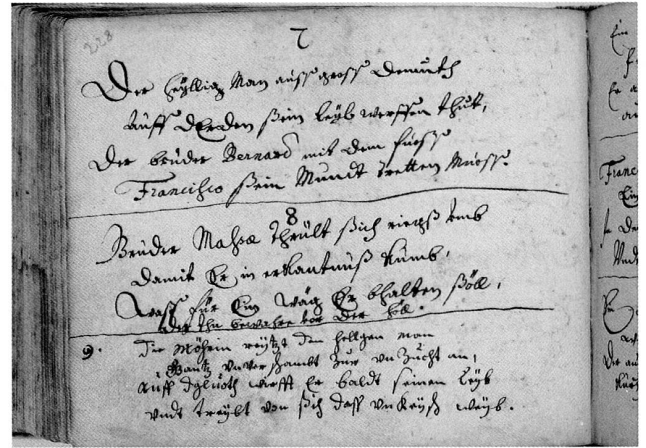 228
7
Der heyllig Man auss gross Demuth
Auff d Erden sein leyb werffen thut,
Der bruder Bernard mit dem fuoss
Francisco sein Mundt tretten Muoss.
8
Bruder Massæ thrült sich ringß umb
damit Er in erkantnuß kumb,
Wass für Ein wäg Er bhalten söll,
der ihn bewahre vor der höll.
9.
die Möhrin reytzt den hellgen man
Gantz unverschambt zur unzucht an,
auff d gluoth wirfft Er baldt seinen leyb
undt treybt von sich dass unkeysch weyb.